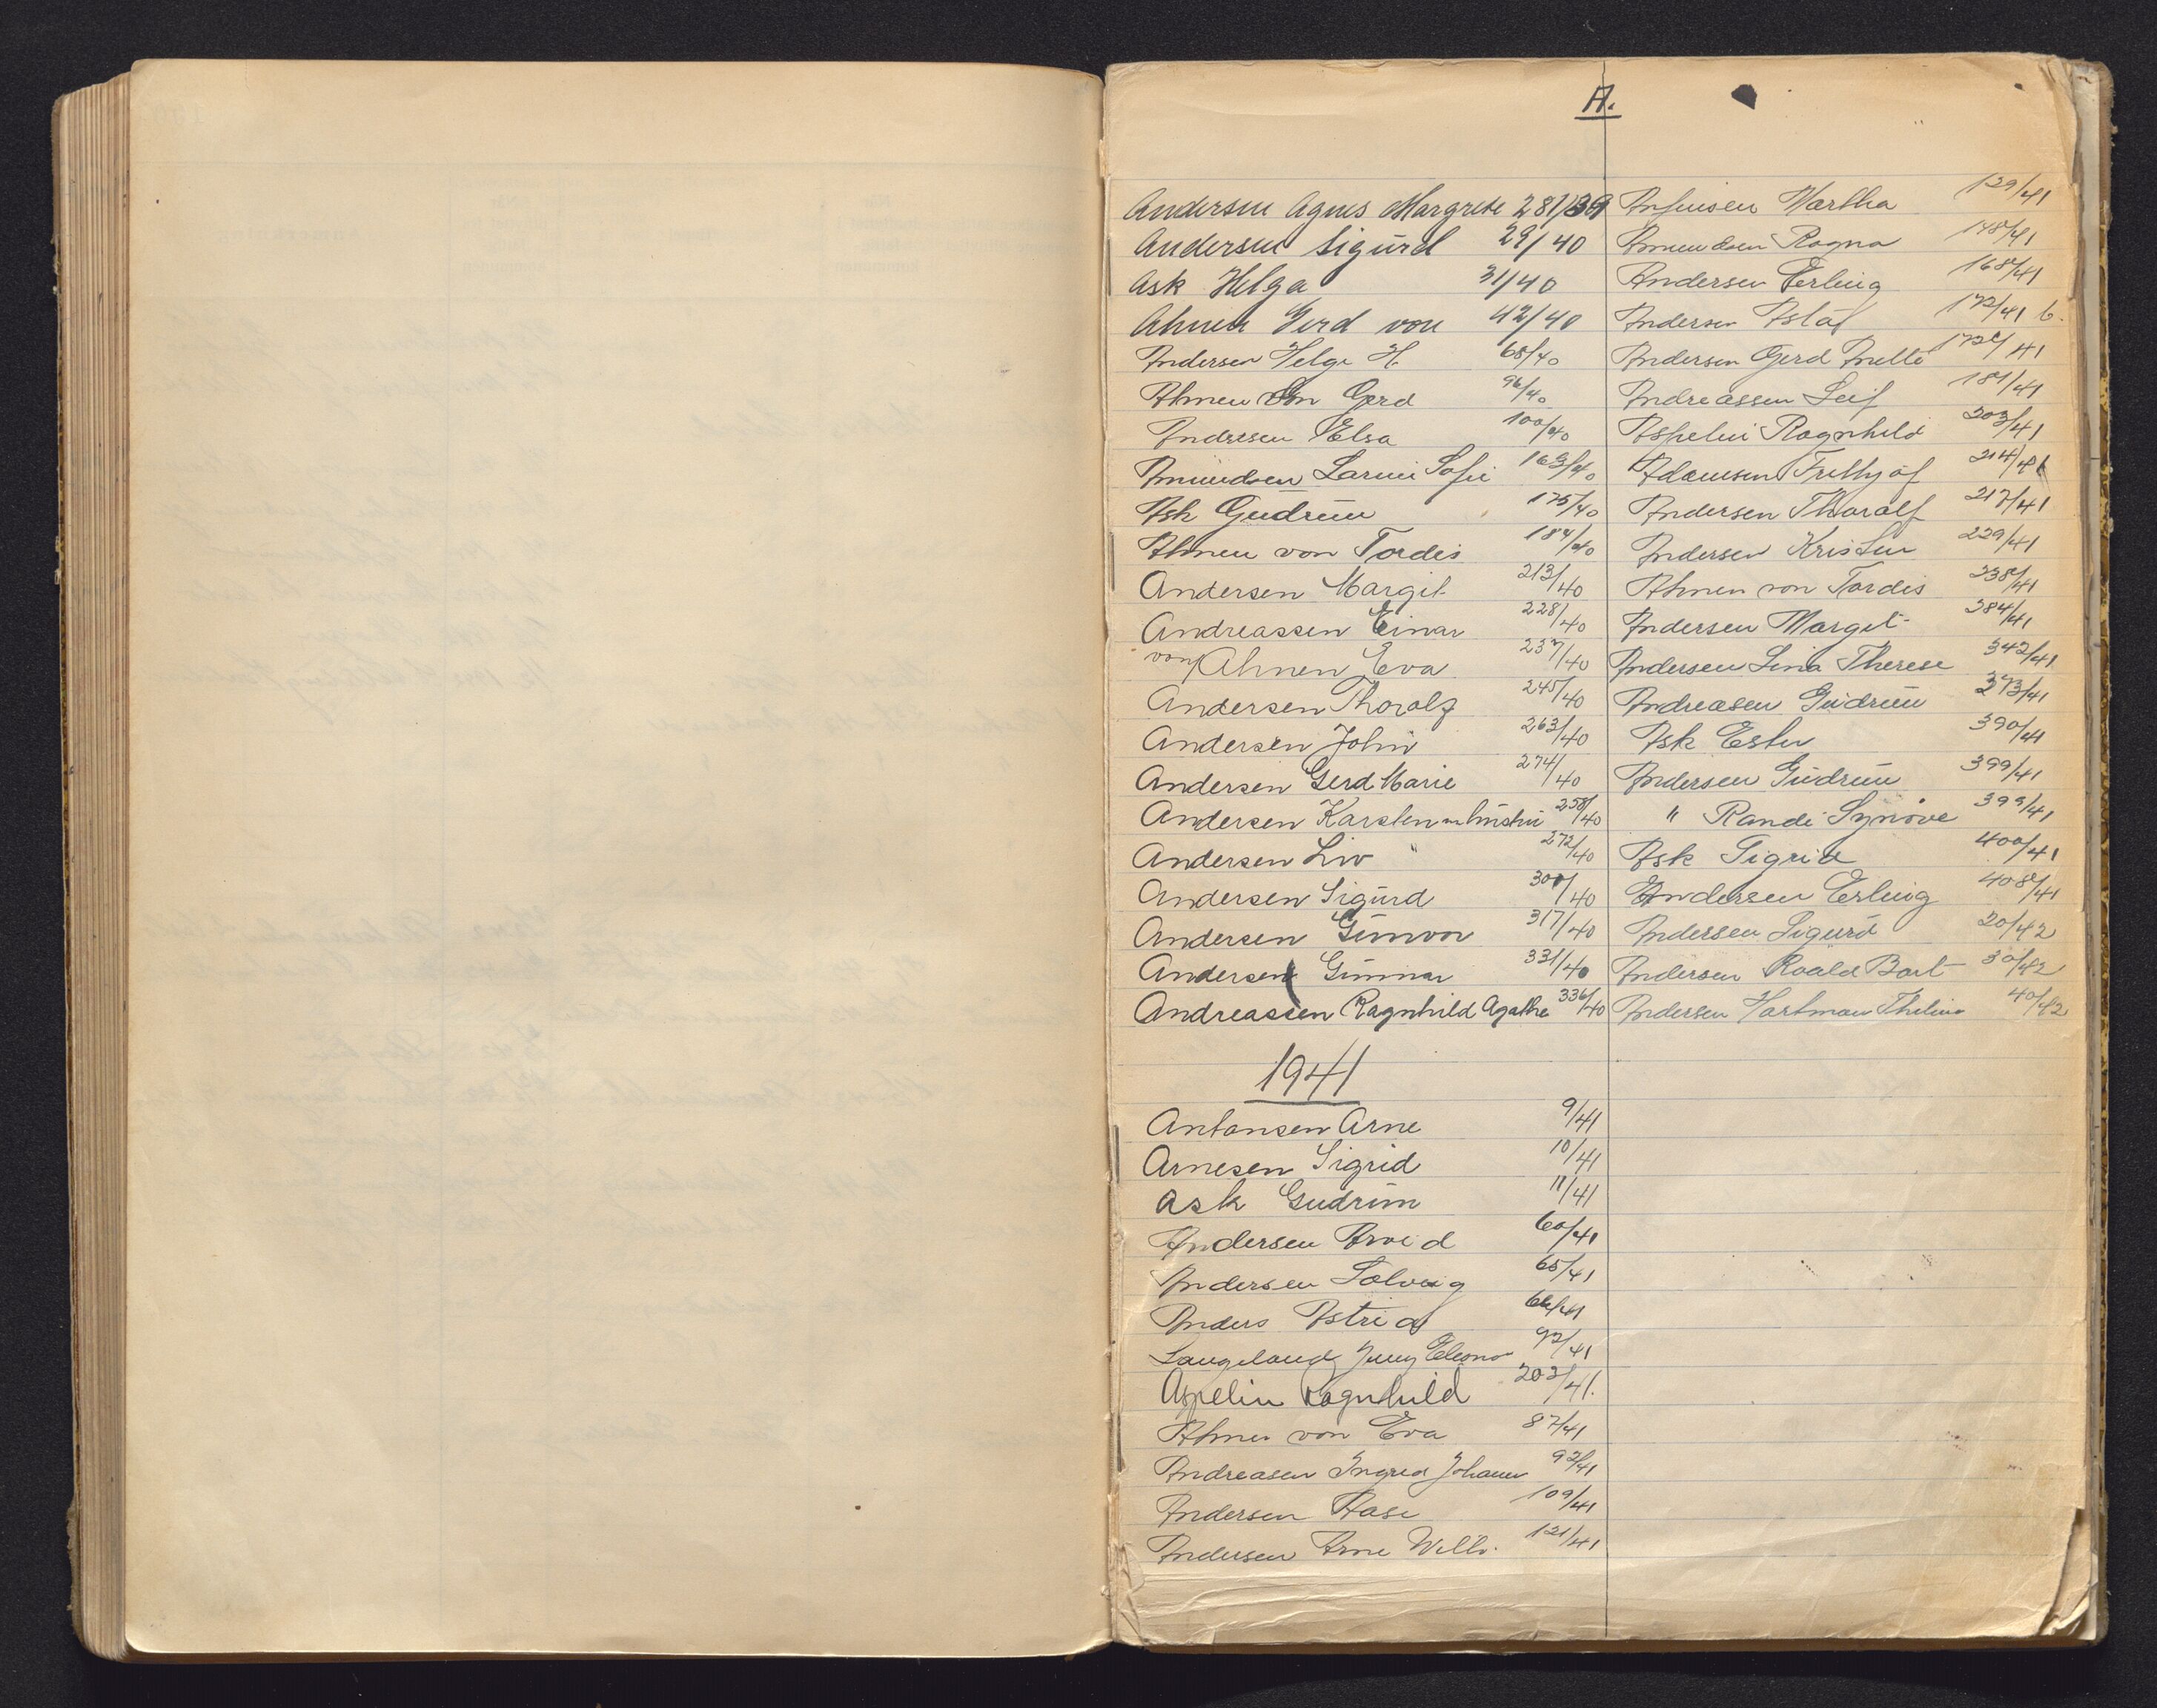 A.
Andersen Agnes Margrete 281/39
Andersen Sigurd 29/40
Ask Helga 31/40
Ahnen Gerd von 42/40
Andersen Helge H. 68/40
Ahnen von Gerd 96/40
Andresen Elsa 100/40
Amundsen Larine Sofie 163/40
Ask Gudrun 175/40
Ahnen von Tordis 184/40
Andersen Margit 213/40
Andreassen Einar 228/40
von Ahnen Eva 237/40
Andersen Thoralf 245/40
Andersen John 263/40
Andersen Gerd Marie 274/40
Andersen Karsten 258/40
Andersen Liv " 272/40
Andersen Sigurd 300/40
Andersen Gunvor 317/40
Andersen Gunnar 331/40
Andreassen Ragnhild Agathe 336/40
1941
Antonsen Arne 9/41
Arnesen Sigrid 10/41
Ask Gudrun 11/41
Andersen Arvid 60/41
Andersen Solveig 65/41
Anders Astrid 66/41
Langeland Jenny Eleono 92/41
Aspelin Ragnhild 203/41.
Ahnen von Eva 87/41
Andreasen Ingrid Johanne 92/41
Andersen Aase 109/41
Andersen Arne Wilh. 121/41
Martha 129/41
Amundsen Ragna 148/41
Andersen Erling 168/41
Andersen Aslaf 172/41 b.
Andersen Gerd Anette 172c/41
Andreassen Leif 181/41
Aspelin Ragnhild 203/41
Adamsen Frithjof 214/41
Andersen Tharalf 217/41
Andersen Kristen 229/41
Ahnen von Tordis 238/41
Andersen Margit 384/41
Andersen Lina Therese 342/41
Andreasen Gudrun 373/41
Ask Ester 390/41
Andersen Gudrun 399/41
" Randi Synøve 399/41
Ask Sigrid 400/41
Andersen Erling 408/41
Andersen Sigurd 20/42
Andersen Roald Bart 30/42
Andersen Hartman 40/42